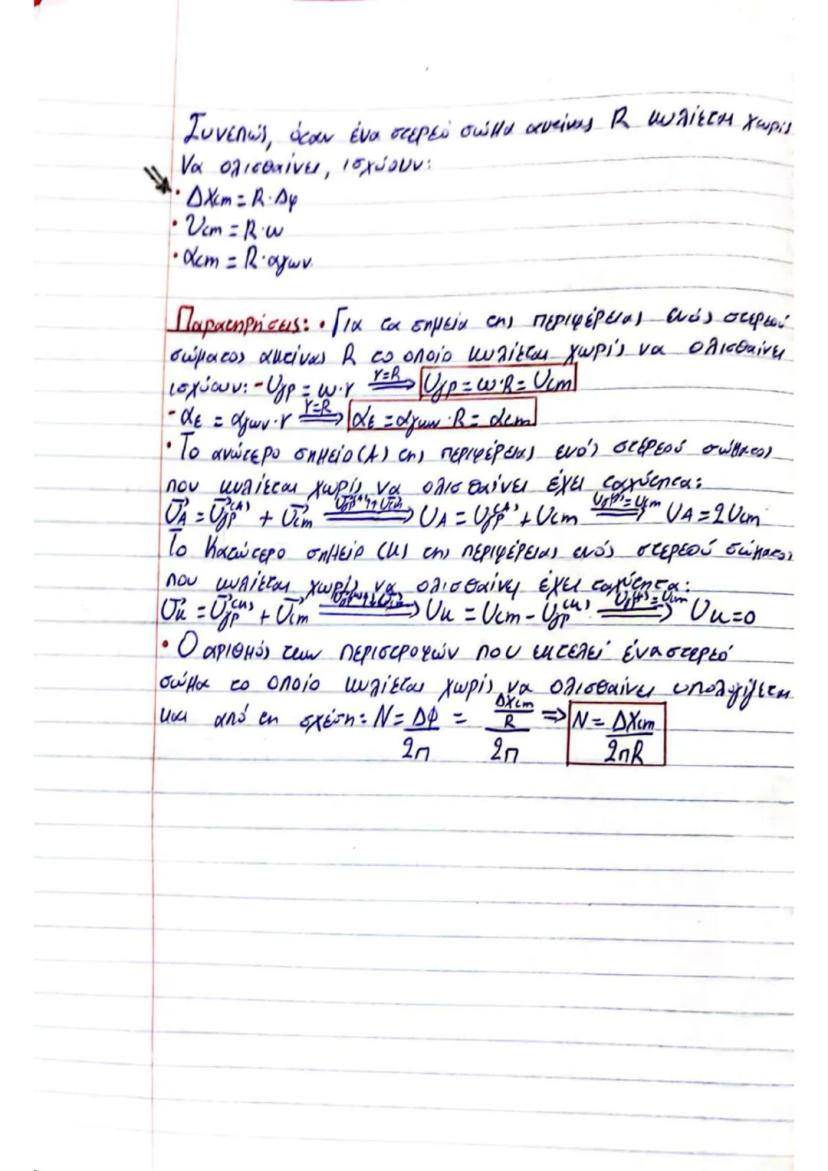 Συνεπώς, όταν ένα στερεό σώμα ακτίνας R κυλίεται χωρίς
να ολισθαίνει, ισχύουν:
• Δχcm = R·Δφ
• υcm = R·ω
• αcm = R·αγων
Παρατηρήσεις: • Για τα σημεία της περιφέρειας ενός στερεού
σώματος ακτίνας R το οποίο κυλίεται χωρίς να ολισθαίνει
ισχύουν: - υγρ = ω·r r=R ⟹ υγρ = ω·R = υcm
- αε = αγων·r r=R ⟹ αε = αγων·R = αcm
• Το ανώτερο σημείο (Α) της περιφέρειας ενός στερεού σώματος
που κυλίεται χωρίς να ολισθαίνει έχει ταχύτητα:
υ⃗A = υ⃗γρ(A) + υ⃗cm υ⃗γρ(A)↑↑υ⃗cm ⟹ υA = υγρ(A) + υcm υγρ(A)=υcm ⟹ υA = 2υcm
Το κατώτερο σημείο (κ) της περιφέρειας ενός στερεού σώματος
που κυλίεται χωρίς να ολισθαίνει έχει ταχύτητα:
υ⃗κ = υ⃗γρ(κ) + υ⃗cm υ⃗γρ(κ)↑↓υ⃗cm ⟹ υκ = υcm - υγρ(κ) υγρ(κ)=υcm ⟹ υκ = 0
• Ο αριθμός των περιστροφών που εκτελεί ένα στερεό
σώμα το οποίο κυλίεται χωρίς να ολισθαίνει υπολογίζεται
και από τη σχέση: N = Δφ/2π = (Δχcm/R)/2π ⟹ N = Δχcm/2πR